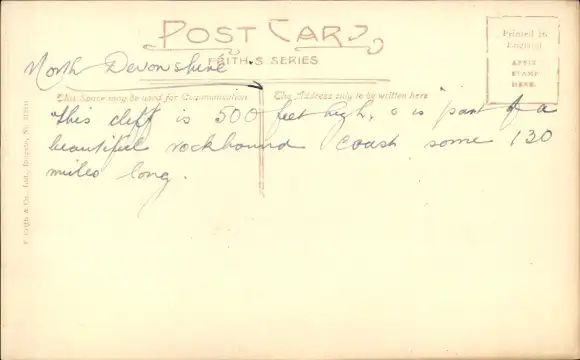 POST CARD
FRITH'S SERIES
Printed in
England
AFFIX
STAMP
HERE.
North Devonshire.
This Space may be used for Communication
The Address only to be written here
This cliff is 500 feet high, & is part of a
beautiful rockbound coast some 120
miles long.
F. Frith & Co., Ltd., Reigate, No.